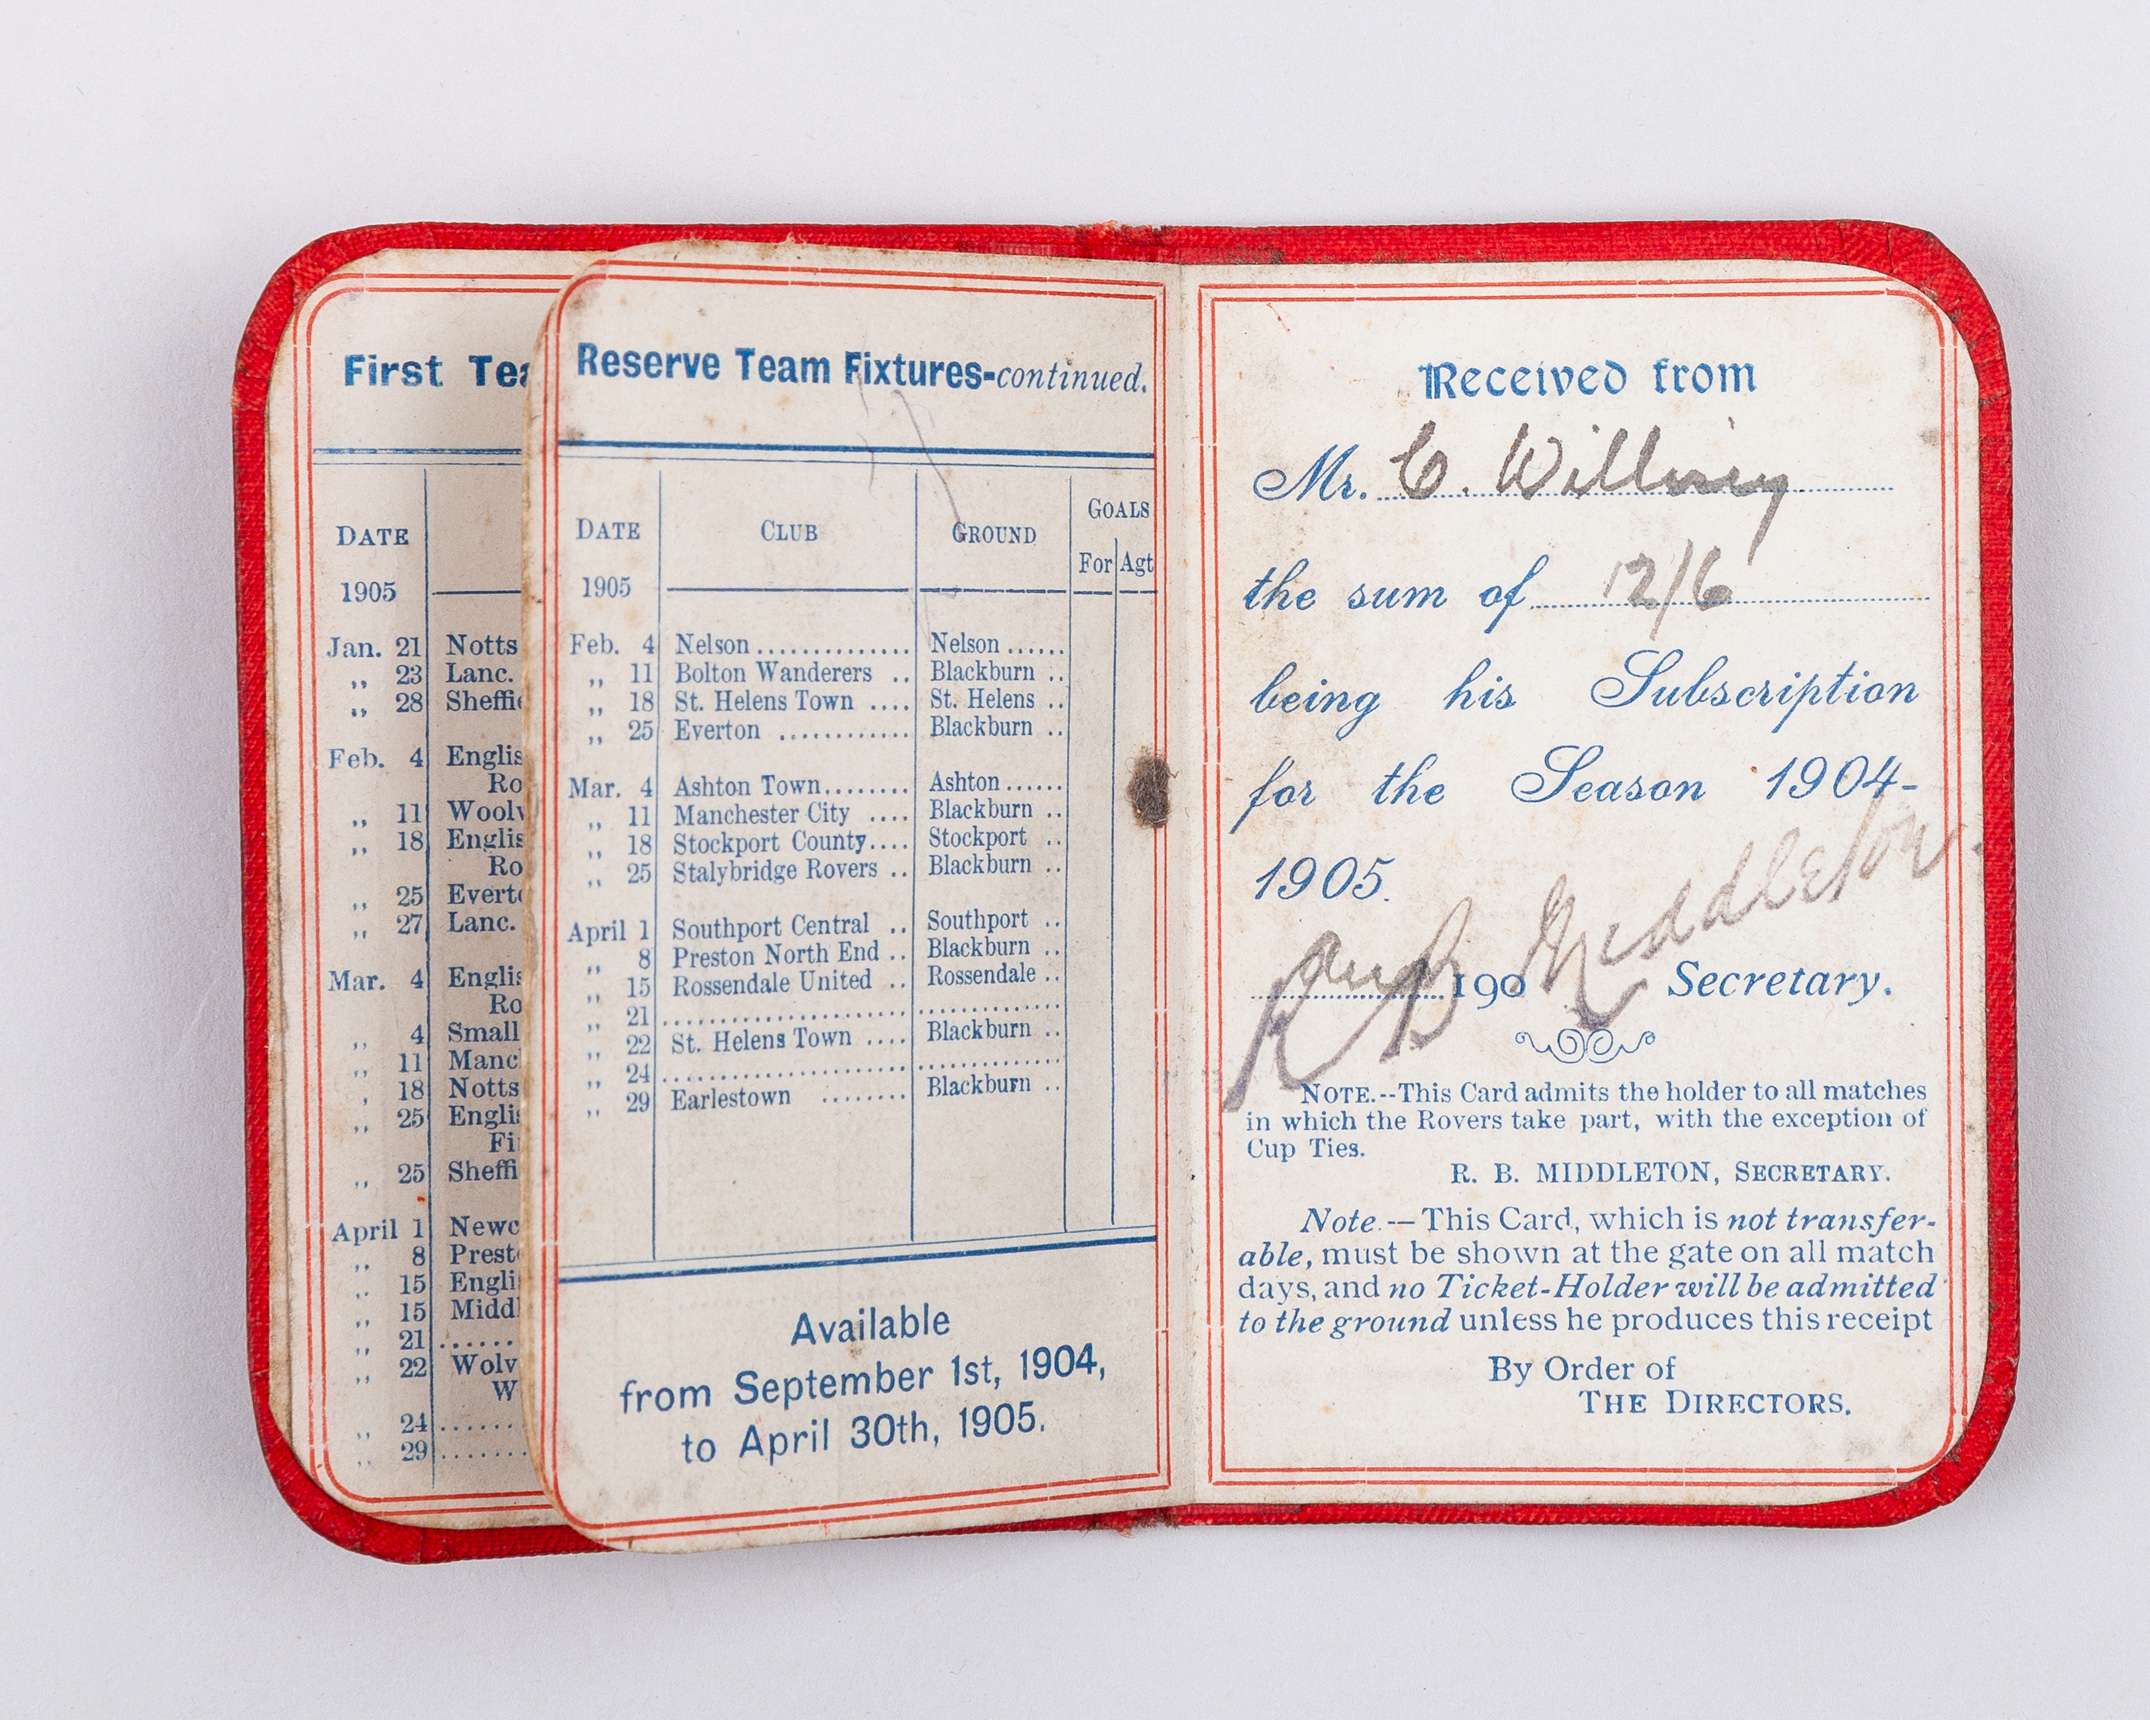 First Tea
DATE
1905
Jan. 21 Notts
,, 23 Lanc.
,, 28 Sheffie
Feb. 4 Englis
Ro
,, 11 Woolw
,, 18 Englis
Ro
,, 25 Everto
,, 27 Lanc.
Mar. 4 Englis
Ro
,, 4 Small
,, 11 Manc
, 18 Notts
,, 25 Englis
Fi
,, 25 Sheffi
April 1 Newc
,, 8 Prest
,, 15 Engli
,, 15 Middl
,, 21 ......
,, 22 Wolv
W
,, 24 ......
,, 29 ......
Reserve Team Fixtures-continued.
DATE CLUB GROUND GOALS
For Agt
1905
Feb. 4 Nelson .............. Nelson ......
,, 11 Bolton Wanderers .. Blackburn ..
,, 18 St. Helens Town .... St. Helens ..
,, 25 Everton ............ Blackburn ..
Mar. 4 Ashton Town........ Ashton ......
,, 11 Manchester City .... Blackburn ..
,, 18 Stockport County.... Stockport ..
,, 25 Stalybridge Rovers .. Blackburn ..
April 1 Southport Central .. Southport ..
,, 8 Preston North End .. Blackburn ..
,, 15 Rossendale United .. Rossendale ..
,, 21 ........................ ..............
,, 22 St. Helens Town .... Blackburn ..
,, 24 ........................ ..............
,, 29 Earlestown ........ Blackburn ..
Available
from September 1st, 1904,
to April 30th, 1905.
Received from
Mr. C.
the sum of 12/6
being his Subscription
for the Season 1904-
1905.
R B Middleton.
190 Secretary.
NOTE.--This Card admits the holder to all matches
in which the Rovers take part, with the exception of
Cup Ties.
R. B. MIDDLETON, SECRETARY.
Note.—This Card, which is not transfer-
able, must be shown at the gate on all match
days, and no Ticket-Holder will be admitted
to the ground unless he produces this receipt
By Order of
THE DIRECTORS.